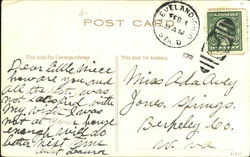 POST CARD
CLEVELAND, OHIO
FEB
STA. D
This side for Correspondence.
This side for the Address.
Dear little niece
how are you and
all the rest. was
not satisfied with
my visit was
not at your house
enough will do
better next time
Aunt Laura
Miss Ada Avey
Jones Springs.
Berkeley Co.
W. Va.